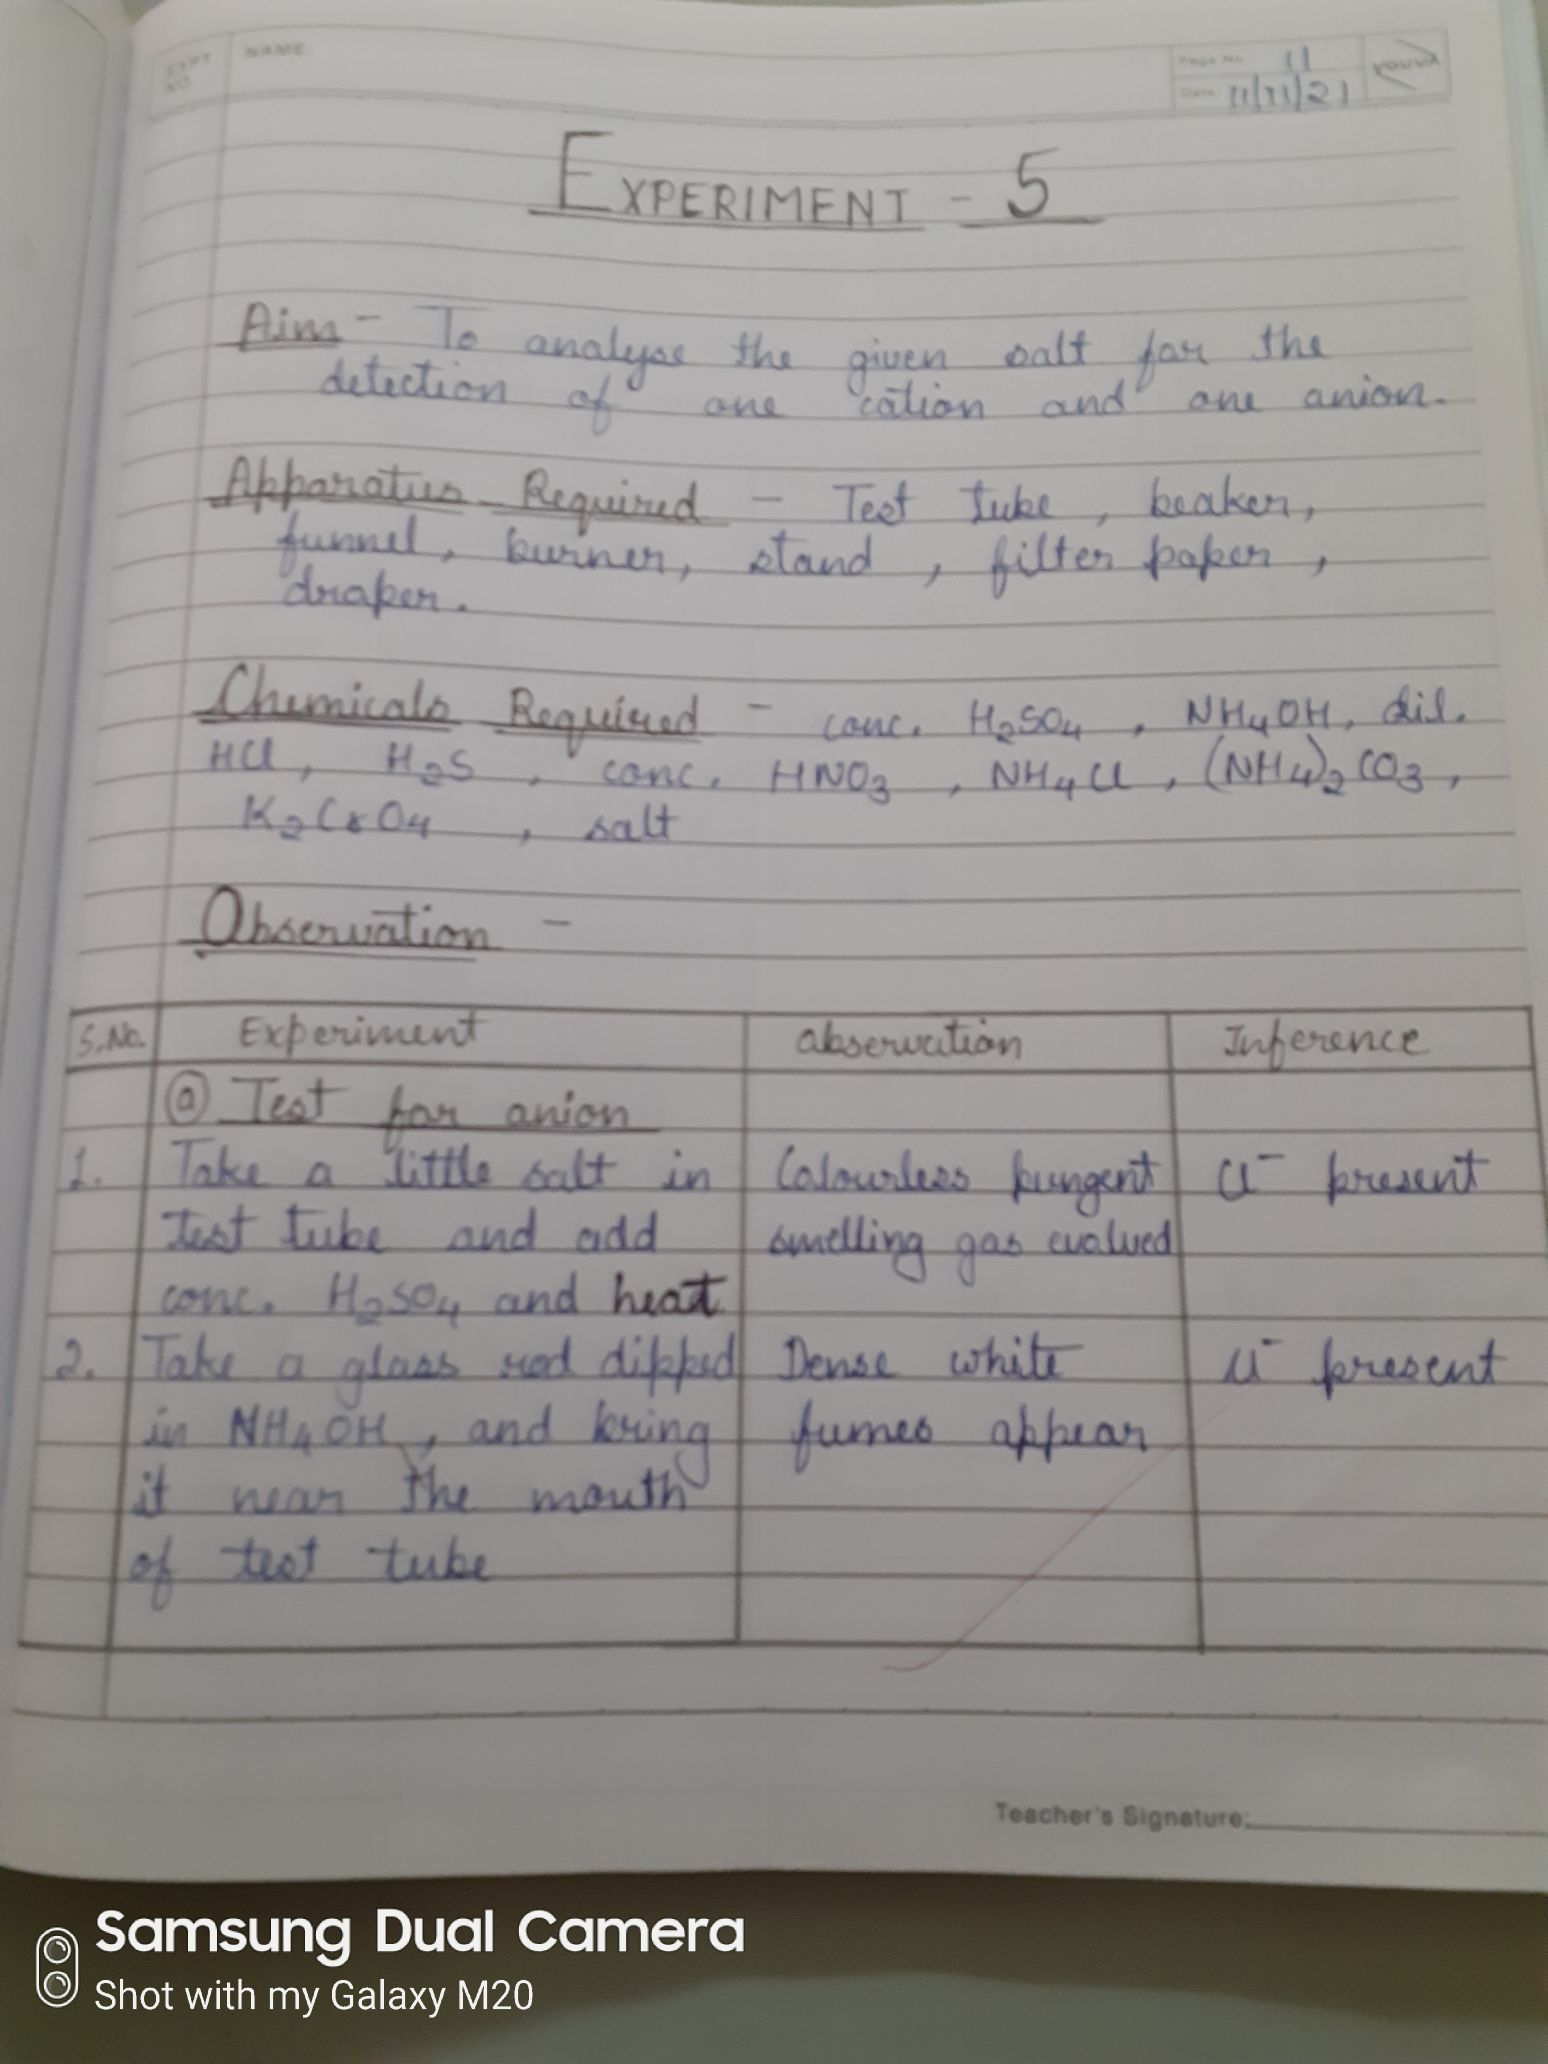 EXPT NO.
NAME
Page No. 11
Date 11/11/21
YOUVA
EXPERIMENT - 5
Aim - To analyse the given salt for the
detection of one cation and one anion.
Apparatus Required - Test tube, beaker,
funnel, burner, stand, filter paper,
draper.
Chemicals Required - conc. H2SO4, NH4OH, dil.
HCl, H2S, conc. HNO3, NH4Cl, (NH4)2CO3,
K2CrO4, salt
Observation -
S.No. Experiment observation Inference
(a) Test for anion
1. Take a little salt in Colourless pungent Cl- present
test tube and add smelling gas evolved
conc. H2SO4 and heat
2. Take a glass rod dipped Dense white Cl- present
in NH4OH, and bring fumes appear
it near the mouth
of test tube
Teacher's Signature:
Samsung Dual Camera
Shot with my Galaxy M20